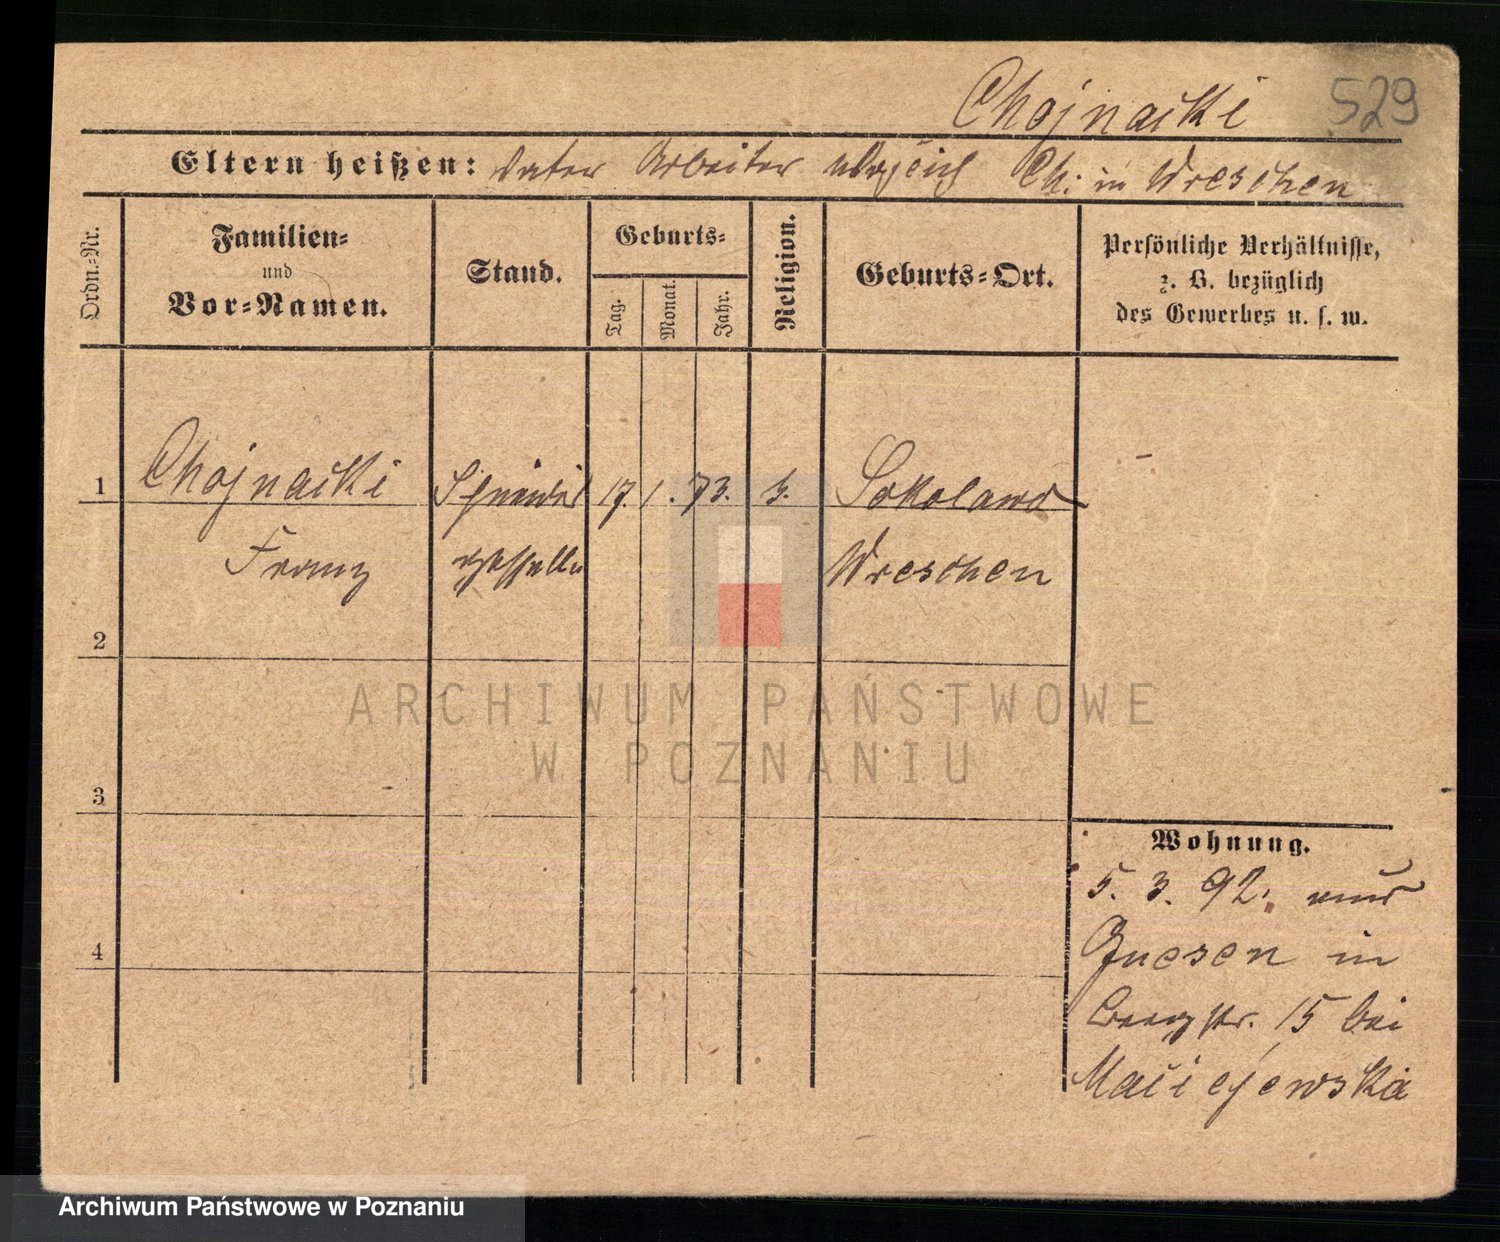 Chojnacki 529
Eltern heißen: Vater Arbeiter Ch. in Wreschen
Ordn.-Nr.
Familien-
und
Vor-Namen.
Stand.
Geburts-
Tag.
Monat.
Jahr.
Religion.
Geburts-Ort.
Persönliche Verhältnisse,
z. B. bezüglich
des Gewerbes u. s. w.
1 Chojnacki 17. 1. 73. Sokolowo
Franz geselle Wreschen
2
3
4
Wohnung.
5. 3. 92.
Gnesen in
Bergstr. 15 bei
Maciejewska
ARCHIWUM PAŃSTWOWE
W POZNANIU
Archiwum Państwowe w Poznaniu